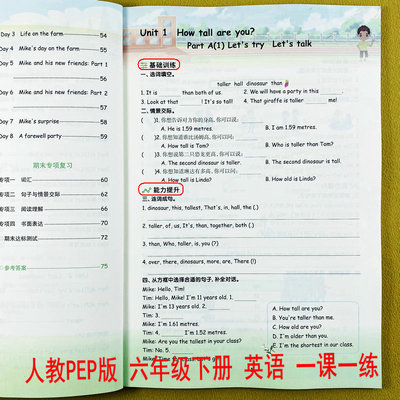 Day 3 Life on the farm 54
Day 4 Mike's day on the farm 55
Day 5 Mike and his new friends: Part 1
56
Day 6 Mike and his new friends: Part 2
57
Day 7 Mike's surprise 58
Day 8 A farewell party 59
期末专项复习
专项一 词汇 60
专项二 句子与情景交际 62
专项三 阅读理解 66
专项四 书面表达 70
期末达标测试 72
参考答案 75
Unit 1 How tall are you?
Part A(1) Let's try Let's talk
基础训练
一、选词填空。
taller hall dinosaur than
1. It is than both of us. 2. We will have a party in this .
3. Look at that ! It's so tall! 4. That giraffe is taller me!
二、情景交际。
( )1. 你想告诉对方你的身高,你可以说:
A. He is 1.59 metres. B. I am 1.59 metres.
( )2. 你想知道谁比汤姆高,你可以问:
A. How tall is Tom? B. Who is taller than Tom?
( )3. 你想说第二只恐龙更高,你可以说:
A. The second dinosaur is taller. B. The second dinosaur is tall.
( )4. 你想知道琳达有多高,你可以问:
A. How tall is Linda? B. How old is Linda?
能力提升
三、连词成句。
1. dinosaur, this, tallest, That's, in, hall, the (.)
2. taller, of, us, It's, than, together, both (.)
3. than, Who, taller, is, you (?)
4. over, there, dinosaurs, more, are, There (!)
四、从方框中选择合适的句子,补全对话。
Mike: Hello, Tim!
Tim: Hello, Mike! I'm 11 years old. 1.
Mike: I'm 13 years old. 2.
Tim: 3.
Mike: I'm 1.61 metres.
Tim: 4. I'm 1.52 metres.
Mike: Are you the tallest in your class?
Tim: No. 5.
A. How tall are you?
B. You're taller than me.
C. How old are you?
D. I'm older than you.
E. I'm the shortest in our class.
人教PEP版 六年级下册 英语 一课一练